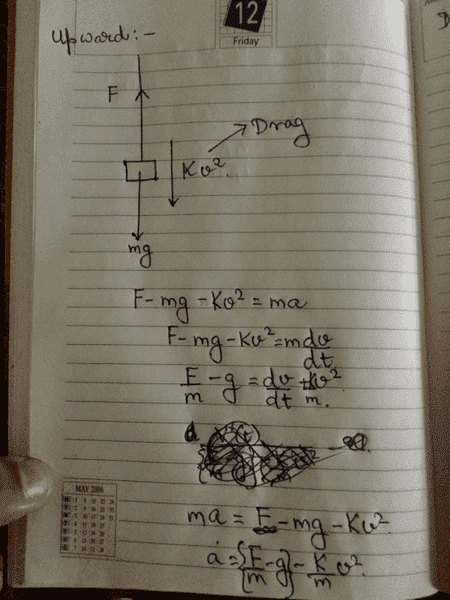 12
Friday
Upward:-
F
Drag
Kv².
mg
F-mg-Kv²=ma
F-mg-Kv²=mdv/dt
F/m-g=dv/dt+Kv²/m.
ma = F-mg-Kv².
a={F/m-g}-K/m v².
MAY 2006